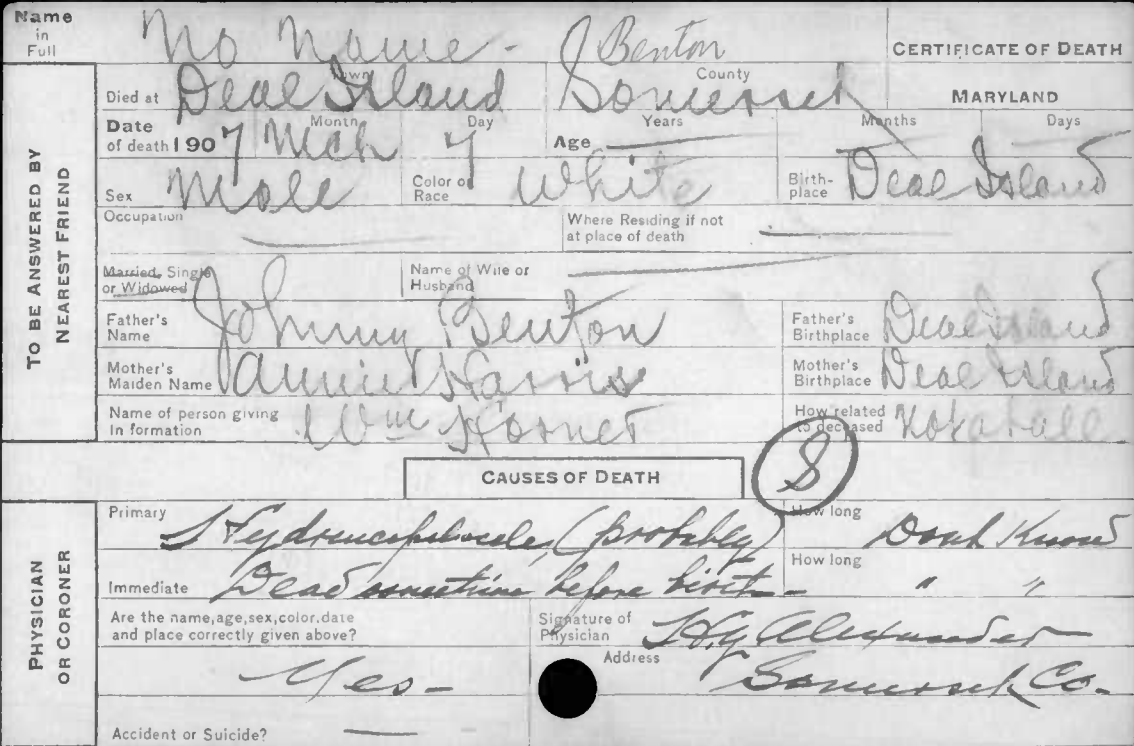 Name in Full No Name - Benton CERTIFICATE OF DEATH
TO BE ANSWERED BY NEAREST FRIEND
Died at Deal Island Town Somerset County MARYLAND
Date of death 1907 Month Mch Day 7 Age Years Months Days
Sex Male Color or Race White Birth-place Deal Island
Occupation Where Residing if not at place of death
Married, Single or Widowed Name of Wife or Husband
Father's Name Johnny Benton Father's Birthplace Deal Island
Mother's Maiden Name Annie Harris Mother's Birthplace Deal Island
Name of person giving In formation Wm Horner How related to deceased Not at all
CAUSES OF DEATH S
PHYSICIAN OR CORONER
Primary Hydrencephalocele (probably) How long Dont Know
Immediate Dead sometime before birth - How long " "
Are the name, age, sex, color, date and place correctly given above? Yes - Signature of Physician Alexander
Address Somerset Co.
Accident or Suicide? —